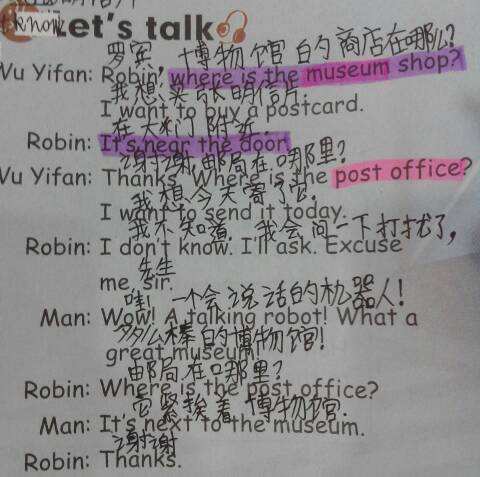 know
Let's talk
罗宾，博物馆的商店在哪儿？
Wu Yifan: Robin, where is the museum shop?
我想买一张明信片.
I want to buy a postcard.
在大门附近.
Robin: It's near the door.
谢谢,邮局在哪里?
Wu Yifan: Thanks. Where is the post office?
我想今天寄了它.
I want to send it today.
我不知道. 我会问一下打扰了,
Robin: I don't know. I'll ask. Excuse
先生
me, sir.
哇! 一个会说话的机器人!
Man: Wow! A talking robot! What a
多么棒的博物馆!
great museum!
邮局在哪里?
Robin: Where is the post office?
它紧挨着博物馆.
Man: It's next to the museum.
谢谢
Robin: Thanks.